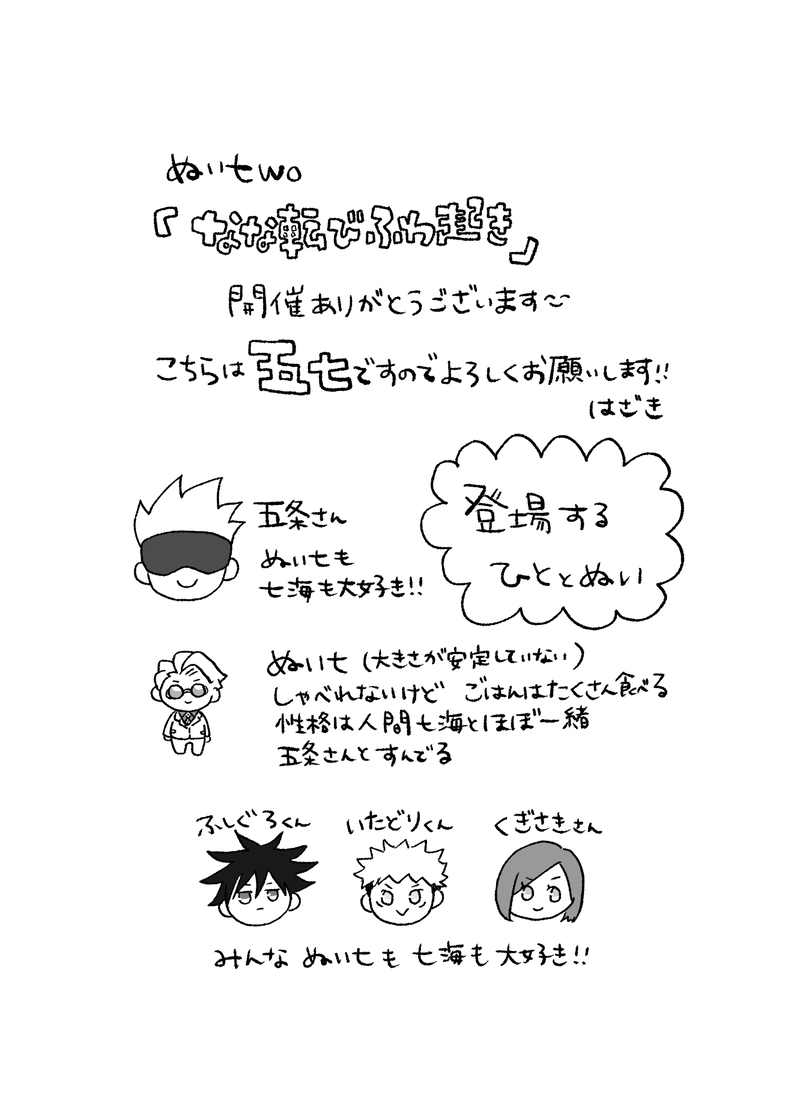 ぬい七wo
『なな転びふわ起き』
開催ありがとうございます〜
こちらは五七ですのでよろしくお願いします!!
はざき
登場する
ひととぬい
五条さん
ぬい七も
七海も大好き!!
ぬい七(大きさが安定していない)
しゃべれないけど ごはんはたくさん食べる
性格は人間七海とほぼ一緒
五条さんとすんでる
ふしぐろくん いたどりくん くぎさきさん
みんな ぬい七も 七海も 大好き!!